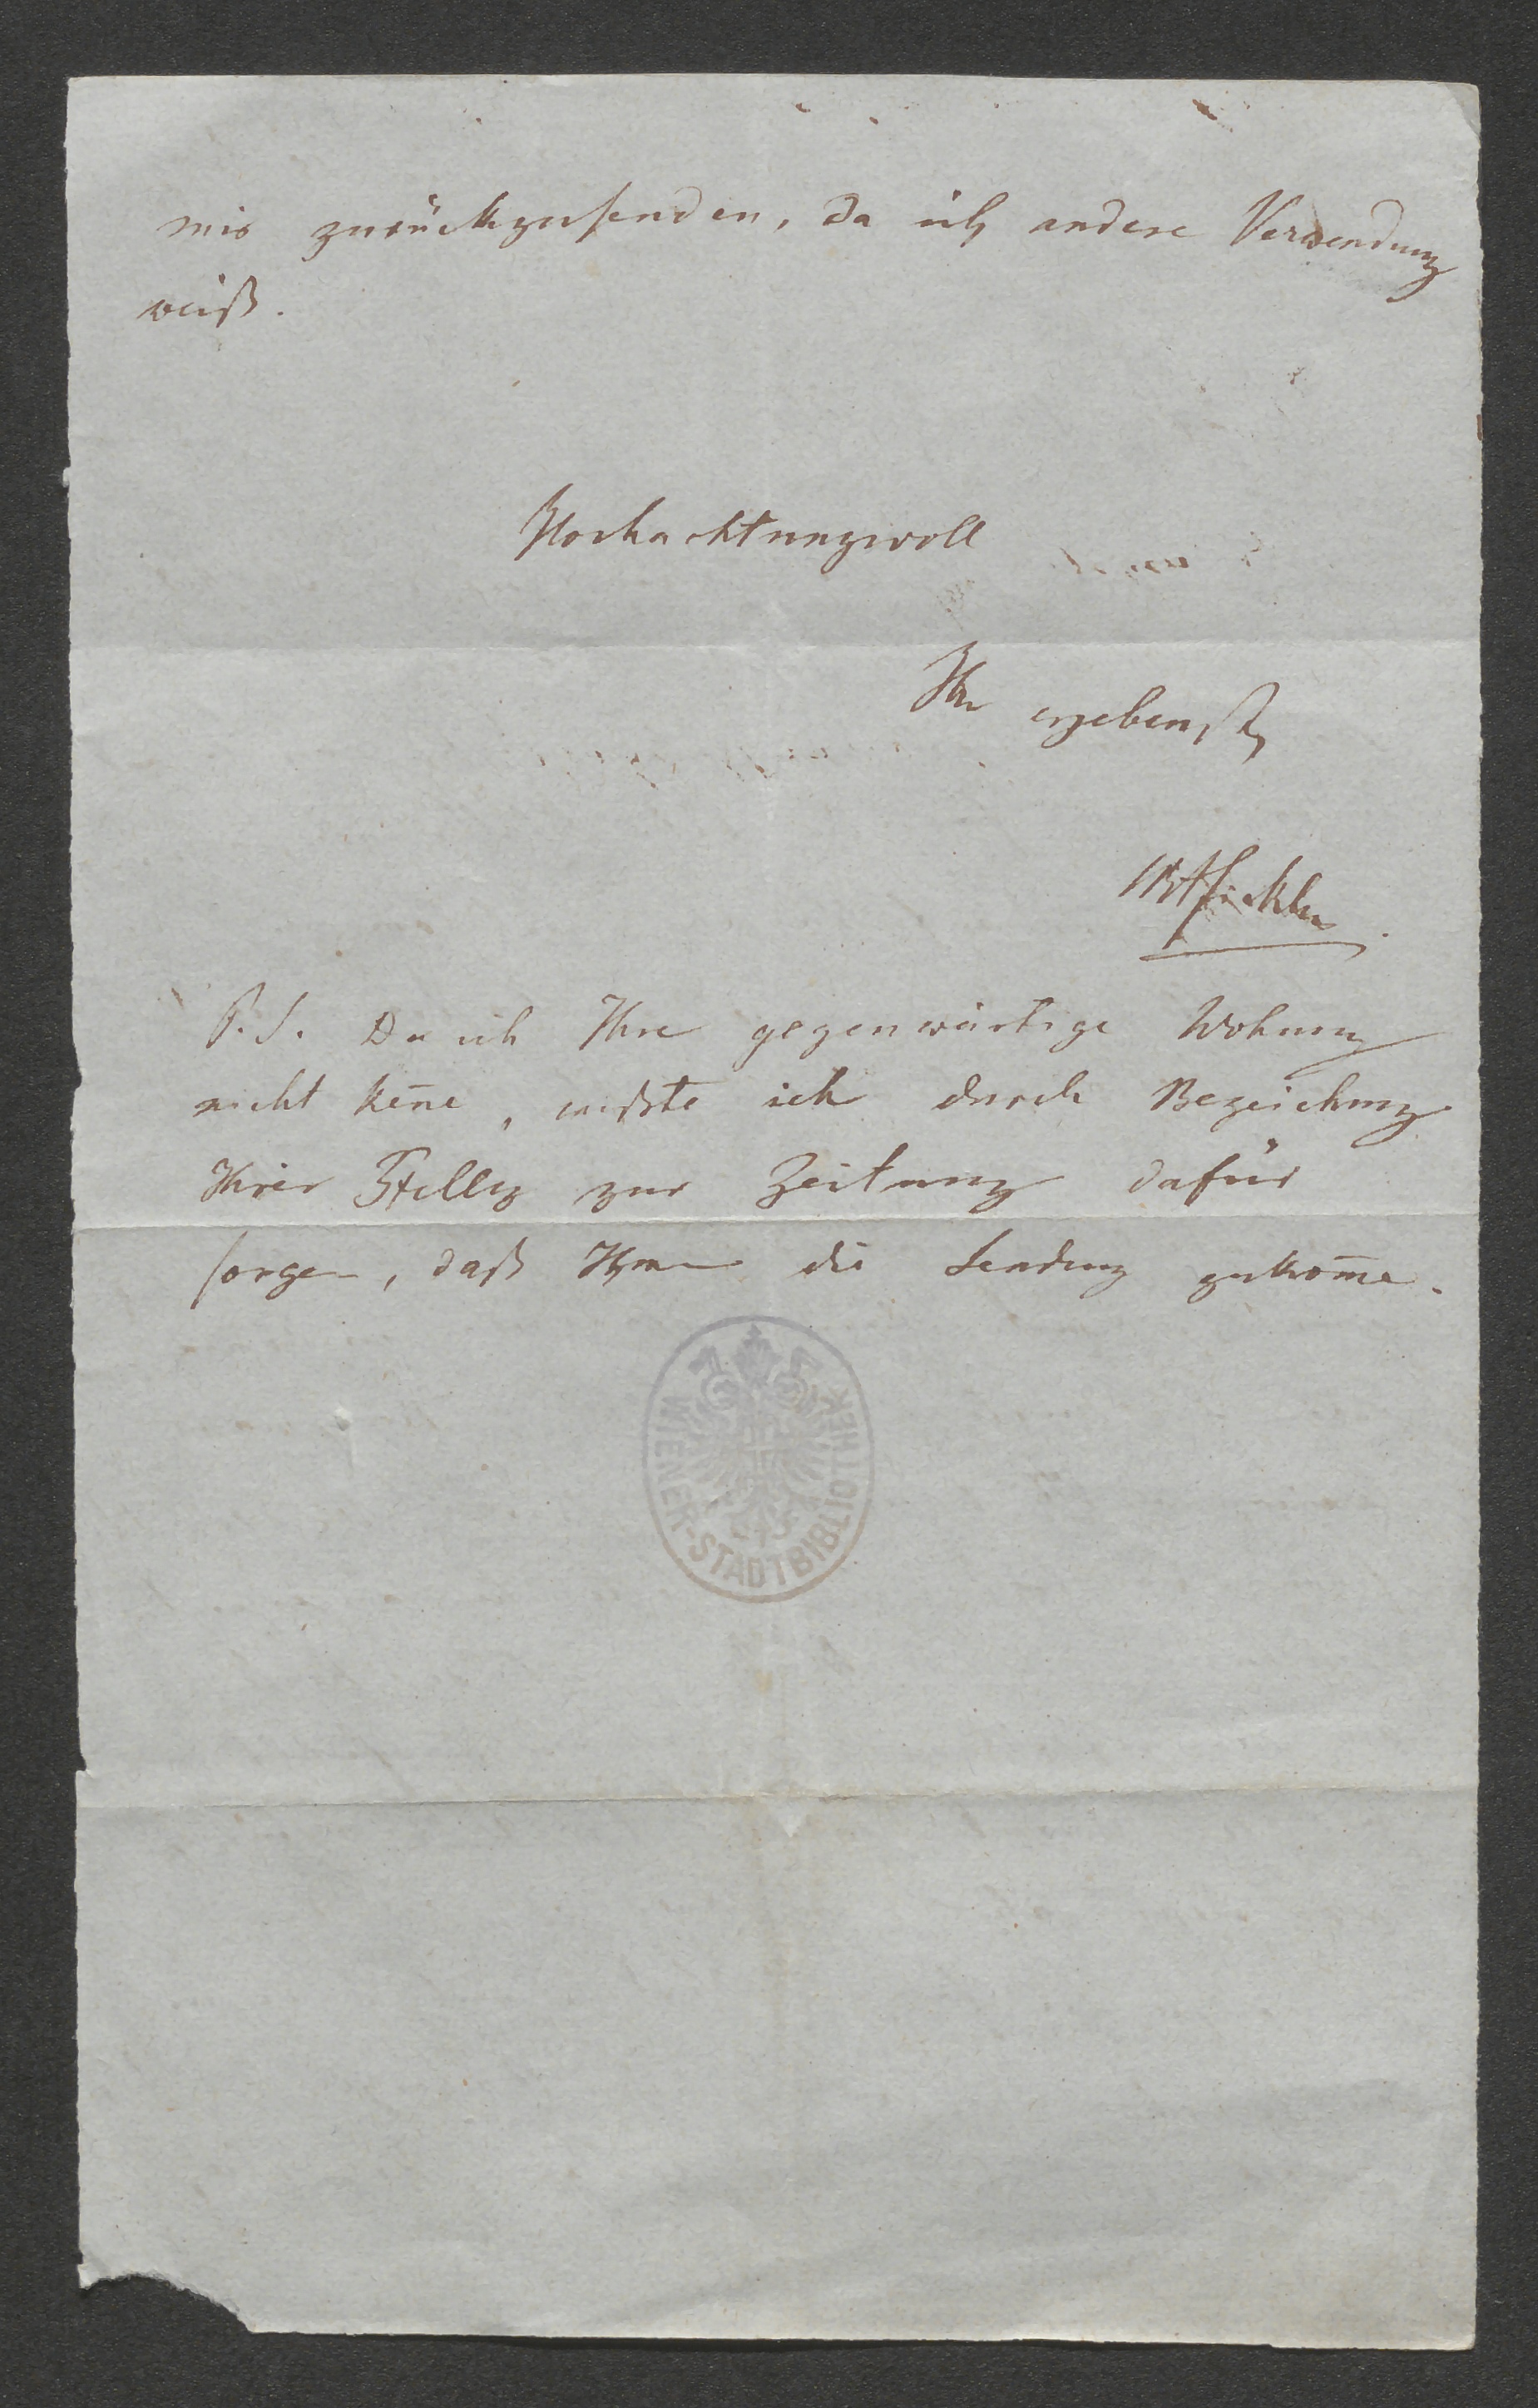 mir zurückzusenden, da ich andere Verwendung
weiß.
Hochachtungsvoll
Ihr ergebenster
P.S. Da ich Ihre gegenwärtige Wohnung
nicht keñe, mußte ich durch Bezeichung
Ihrer Stellg zur Zeitung dafür
sorgen, daß Ihnen die Sendung zukom̄e.
WIENER-STADTBIBLIOTHEK